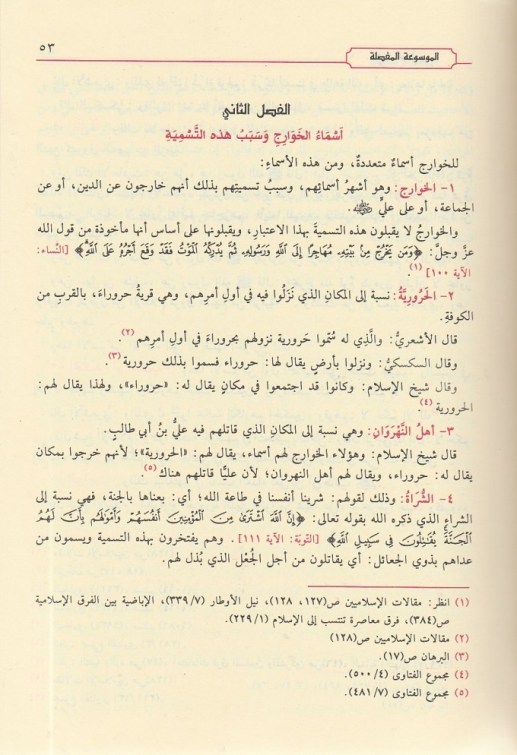 الموسوعة المفصلة
٥٣
الفصل الثاني
أَسْمَاءُ الخَوَارِجِ وَسَبَبُ هذه التَّسْمِيَةِ
للخوارج أسماءٌ متعددةٌ، ومن هذه الأسماءِ:
١- الخوارج: وهو أشهرُ أسمائِهم، وسببُ تسميتِهم بذلك أنهم خارجون عن الدين، أو عن
الجماعة، أو على عليٍّ ﵁.
والخوارجُ لا يقبلون هذه التسميةَ بهذا الاعتبارِ، ويقبلونها على أساس أنها مأخوذة من قول الله
عزَّ وجلَّ: ﴿وَمَن يَخْرُجْ مِنْ بَيْتِهِۦ مُهَاجِرًا إِلَى ٱللَّهِ وَرَسُولِهِۦ ثُمَّ يُدْرِكْهُ ٱلْمَوْتُ فَقَدْ وَقَعَ أَجْرُهُۥ عَلَى ٱللَّهِ﴾ [النِّساء:
الآية ١٠٠] (١).
٢- الحَرُورِيَّةُ: نسبة إلى المكانِ الذي نَزَلُوا فيه في أولِ أمرِهم، وهي قريةُ حروراءَ، بالقربِ من
الكوفةِ.
قال الأشعريُّ: والَّذِي له سُمُّوا حَرورية نزولهم بحروراءَ في أولِ أمرِهم (٢).
وقال السكسكيُّ: ونزلوا بأرضٍ يقال لها: حروراء فسموا بذلك حرورية (٣).
وقال شيخ الإسلام: وكانوا قد اجتمعوا في مكانٍ يقال له: «حروراء»، ولهذا يقال لهم:
الحرورية (٤).
٣- أهلُ النَّهْرَوَانِ: وهي نسبة إلى المكانِ الذي قاتلهم فيه عليُّ بنُ أبي طالبٍ.
قال شيخ الإسلام: وهؤلاء الخوارج لهم أسماء، يقال لهم: «الحرورية»؛ لأنهم خرجوا بمكان
يقال له: حروراء، ويقال لهم أهل النهروان؛ لأن عليًّا قاتلهم هناك (٥).
٤- الشُّرَاةُ: وذلك لقولهم: شرينا أنفسنا في طاعة الله؛ أي: بعناها بالجنة، فهي نسبة إلى
الشراءِ الذي ذكره الله بقوله تعالى: ﴿إِنَّ ٱللَّهَ ٱشْتَرَىٰ مِنَ ٱلْمُؤْمِنِينَ أَنفُسَهُمْ وَأَمْوَٰلَهُم بِأَنَّ لَهُمُ
ٱلْجَنَّةَ يُقَٰتِلُونَ فِي سَبِيلِ ٱللَّهِ﴾ [التّوبَة: الآية ١١١] . وهم يفتخرون بهذه التسمية ويسمون من
عداهم بذوي الجعائل: أي يقاتلون من أجل الجُعْل الذي بُذل لهم.
(١) انظر: مقالات الإسلاميين ص(١٢٧، ١٢٨)، نيل الأوطار (٣٣٩/٧)، الإباضية بين الفرق الإسلامية
ص(٣٨٤)، فرق معاصرة تنتسب إلى الإسلام (٢٢٩/١).
(٢) مقالات الإسلاميين ص(١٢٨)
(٣) البرهان ص(١٧).
(٤) مجموع الفتاوى (٥٠٠/٤).
(٥) مجموع الفتاوى (٤٨١/٧).